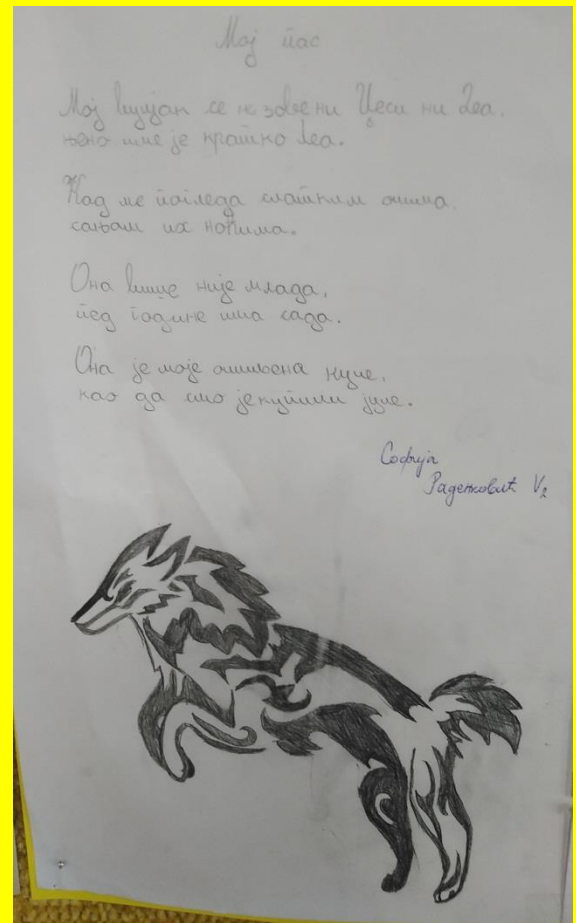 Мој пас
Мој вучјак се не зове ни Џеси ни Леа,
њено име је кратко Беа.
Кад ме погледа слатким очима,
сањам их ноћима.
Она више није млада,
пед године има сада.
Она је моје омиљена куче,
као да смо је купили јуче.
Софија
Раденковић V₂